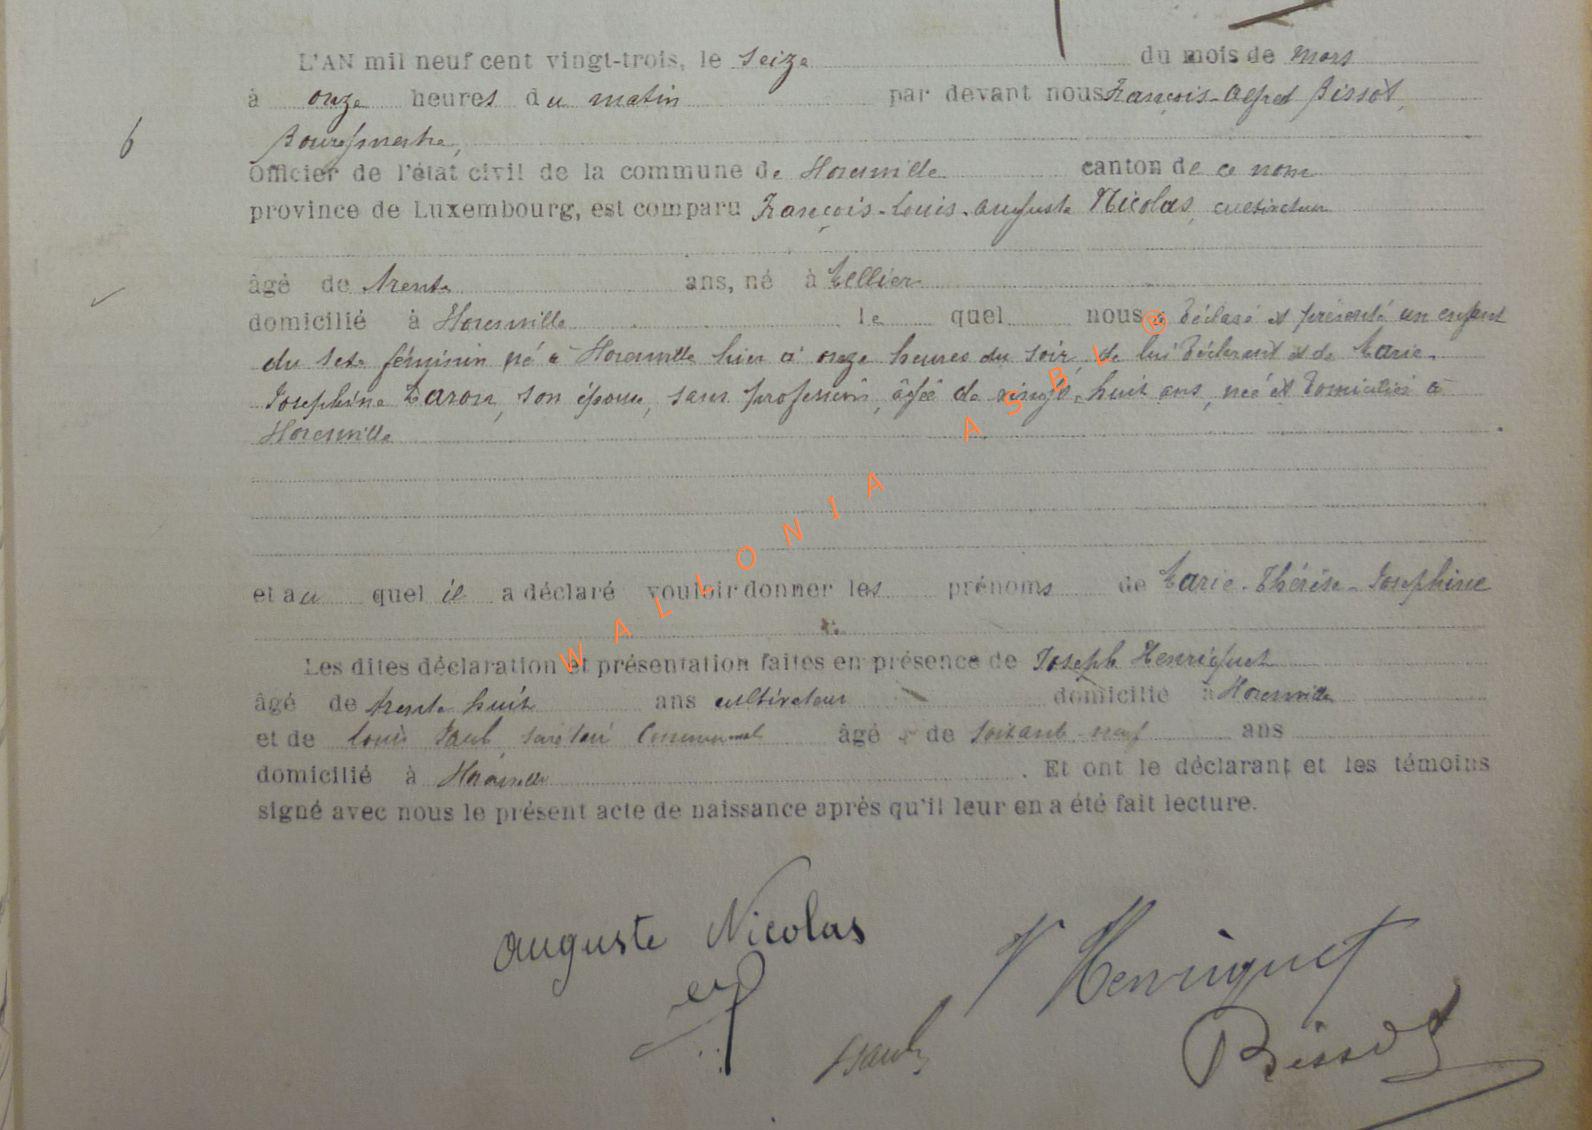 L'AN mil neuf cent vingt-trois, le seize du mois de mars
à onze heures du matin par devant nous François-Alfred Bissot,
Bourgmestre,
6
Officier de l'état civil de la commune de canton de ce nom
province de Luxembourg, est comparu François-Louis-Auguste Nicolas, cultivateur
âgé de trente ans, né à Tellier
domicilié à le quel nous a déclaré et présenté un enfant
du sexe féminin né à hier à onze heures du soir, de lui déclarant et de Marie-
Josephine son épouse, sans profession, âgée de vingt-huit ans, née et domiciliée à
et au quel il a déclaré vouloir donner les prénoms de Marie-Thérèse-Josephine
Les dites déclaration et présentation faites en présence de Joseph Henriquet
âgé de trente huit ans cultivateur domicilié à
et de Louis Paul, secrétaire Communal âgé de soixante-neuf ans
domicilié à . Et ont le déclarant et les témoins
signé avec nous le présent acte de naissance après qu'il leur en a été fait lecture.
Auguste Nicolas
Henriquet
Paul
Bissot
WALLONIA ASBL ®